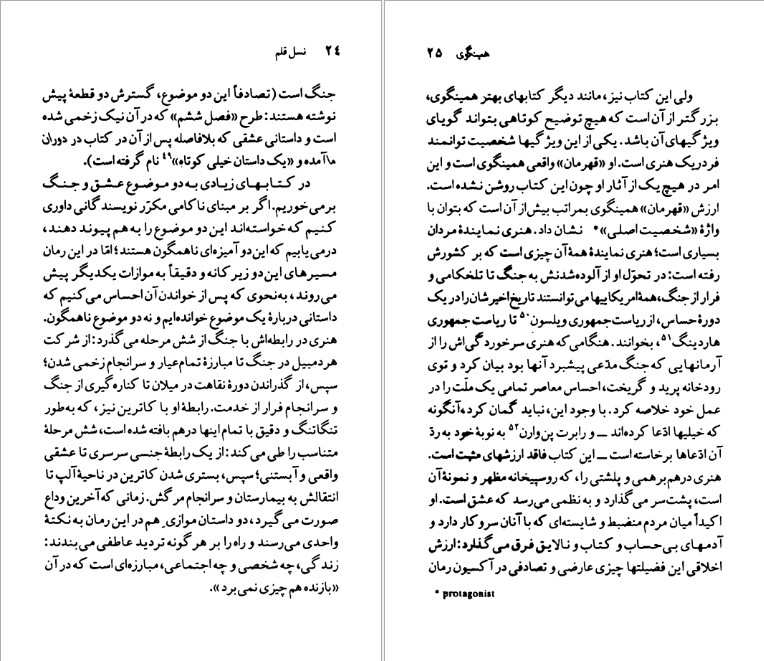 ۲۴ نسل قلم
جنگ است (تصادفاً این دو موضوع، گسترش دو قطعهٔ پیش
نوشته هستند: طرح «فصل ششم» که در آن نیک زخمی شده
است و داستانی عشقی که بلافاصله پس از آن در کتاب در دوران
ما آمده و «یک داستان خیلی کوتاه»۴۹ نام گرفته است).
در کتابهای زیادی به دو موضوع عشق و جنگ
برمی‌خوریم. اگر بر مبنای ناکامی مکرّر نویسندگانی داوری
کنیم که خواسته‌اند این دو موضوع را به هم پیوند دهند،
درمی‌یابیم که این دو آمیزه‌ای ناهمگون هستند؛ امّا در این رمان
مسیرهای این دو زیرکانه و دقیقاً به موازات یکدیگر پیش
می‌روند، به‌نحوی که پس از خواندن آن احساس می‌کنیم که
داستانی دربارهٔ یک موضوع خوانده‌ایم و نه دو موضوع ناهمگون.
هنری در رابطه‌اش با جنگ از شش مرحله می‌گذرد: از شرکت
هردمبیل در جنگ تا مبارزهٔ تمام‌عیار و سرانجام زخمی شدن؛
سپس، از گذراندن دورهٔ نقاهت در میلان تا کناره‌گیری از جنگ
و سرانجام فرار از خدمت. رابطهٔ او با کاترین نیز، که به‌طور
تنگاتنگ و دقیق با تمام اینها درهم بافته شده است، شش مرحلهٔ
متناسب را طی می‌کند: از یک رابطهٔ جنسی سرسری تا عشقی
واقعی و آبستنی؛ سپس، بستری شدن کاترین در ناحیهٔ آلپ تا
انتقالش به بیمارستان و سرانجام مرگش. زمانی که آخرین وداع
صورت می‌گیرد، دو داستان موازی هم در این رمان به نکتهٔ
واحدی می‌رسند و راه را بر هر گونه تردید عاطفی می‌بندند:
زندگی، چه شخصی و چه اجتماعی، مبارزه‌ای است که در آن
«بازنده هم چیزی نمی‌برد».
همینگوی ۲۵
ولی این کتاب نیز، مانند دیگر کتابهای بهتر همینگوی،
بزرگتر از آن است که هیچ توضیح کوتاهی بتواند گویای
ویژگیهای آن باشد. یکی از این ویژگیها شخصیت توانمند
فردریک هنری است. او «قهرمان» واقعی همینگوی است و این
امر در هیچ یک از آثار او چون این کتاب روشن نشده است.
ارزش «قهرمان» همینگوی بمراتب بیش از آن است که بتوان با
واژهٔ «شخصیت اصلی»* نشان داد. هنری نمایندهٔ مردان
بسیاری است؛ هنری نمایندهٔ همهٔ آن چیزی است که بر کشورش
رفته است: در تحوّل او از آلوده‌شدنش به جنگ تا تلخکامی و
فرار از جنگ، همهٔ امریکاییها می‌توانستند تاریخ اخیرشان را در یک
دورهٔ حساس، از ریاست جمهوری ویلسون۵۰ تا ریاست جمهوری
هاردینگ۵۱، بخوانند. هنگامی که هنری سرخوردگی‌اش را از
آرمانهایی که جنگ مدّعی پیشبرد آنها بود بیان کرد و توی
رودخانه پرید و گریخت، احساس معاصر تمامی یک ملّت را در
عمل خود خلاصه کرد. با وجود این، نباید گمان کرد، آنگونه
که خیلیها ادّعا کرده‌اند ــ و رابرت پن‌وارن۵۲ به نوبهٔ خود به ردّ
آن ادّعاها برخاسته است ــ این کتاب فاقد ارزشهای مثبت است.
هنری درهم‌برهمی و پلشتی را، که روسپیخانه مظهر و نمونهٔ آن
است، پشت‌سر می‌گذارد و به نظمی می‌رسد که عشق است. او
اکیداً میان مردم منضبط و شایسته‌ای که با آنان سروکار دارد و
آدمهای بی‌حساب و کتاب و نالایق فرق می‌گذارد: ارزش
اخلاقی این فضیلتها چیزی عارضی و تصادفی در آکسیون رمان
* protagonist